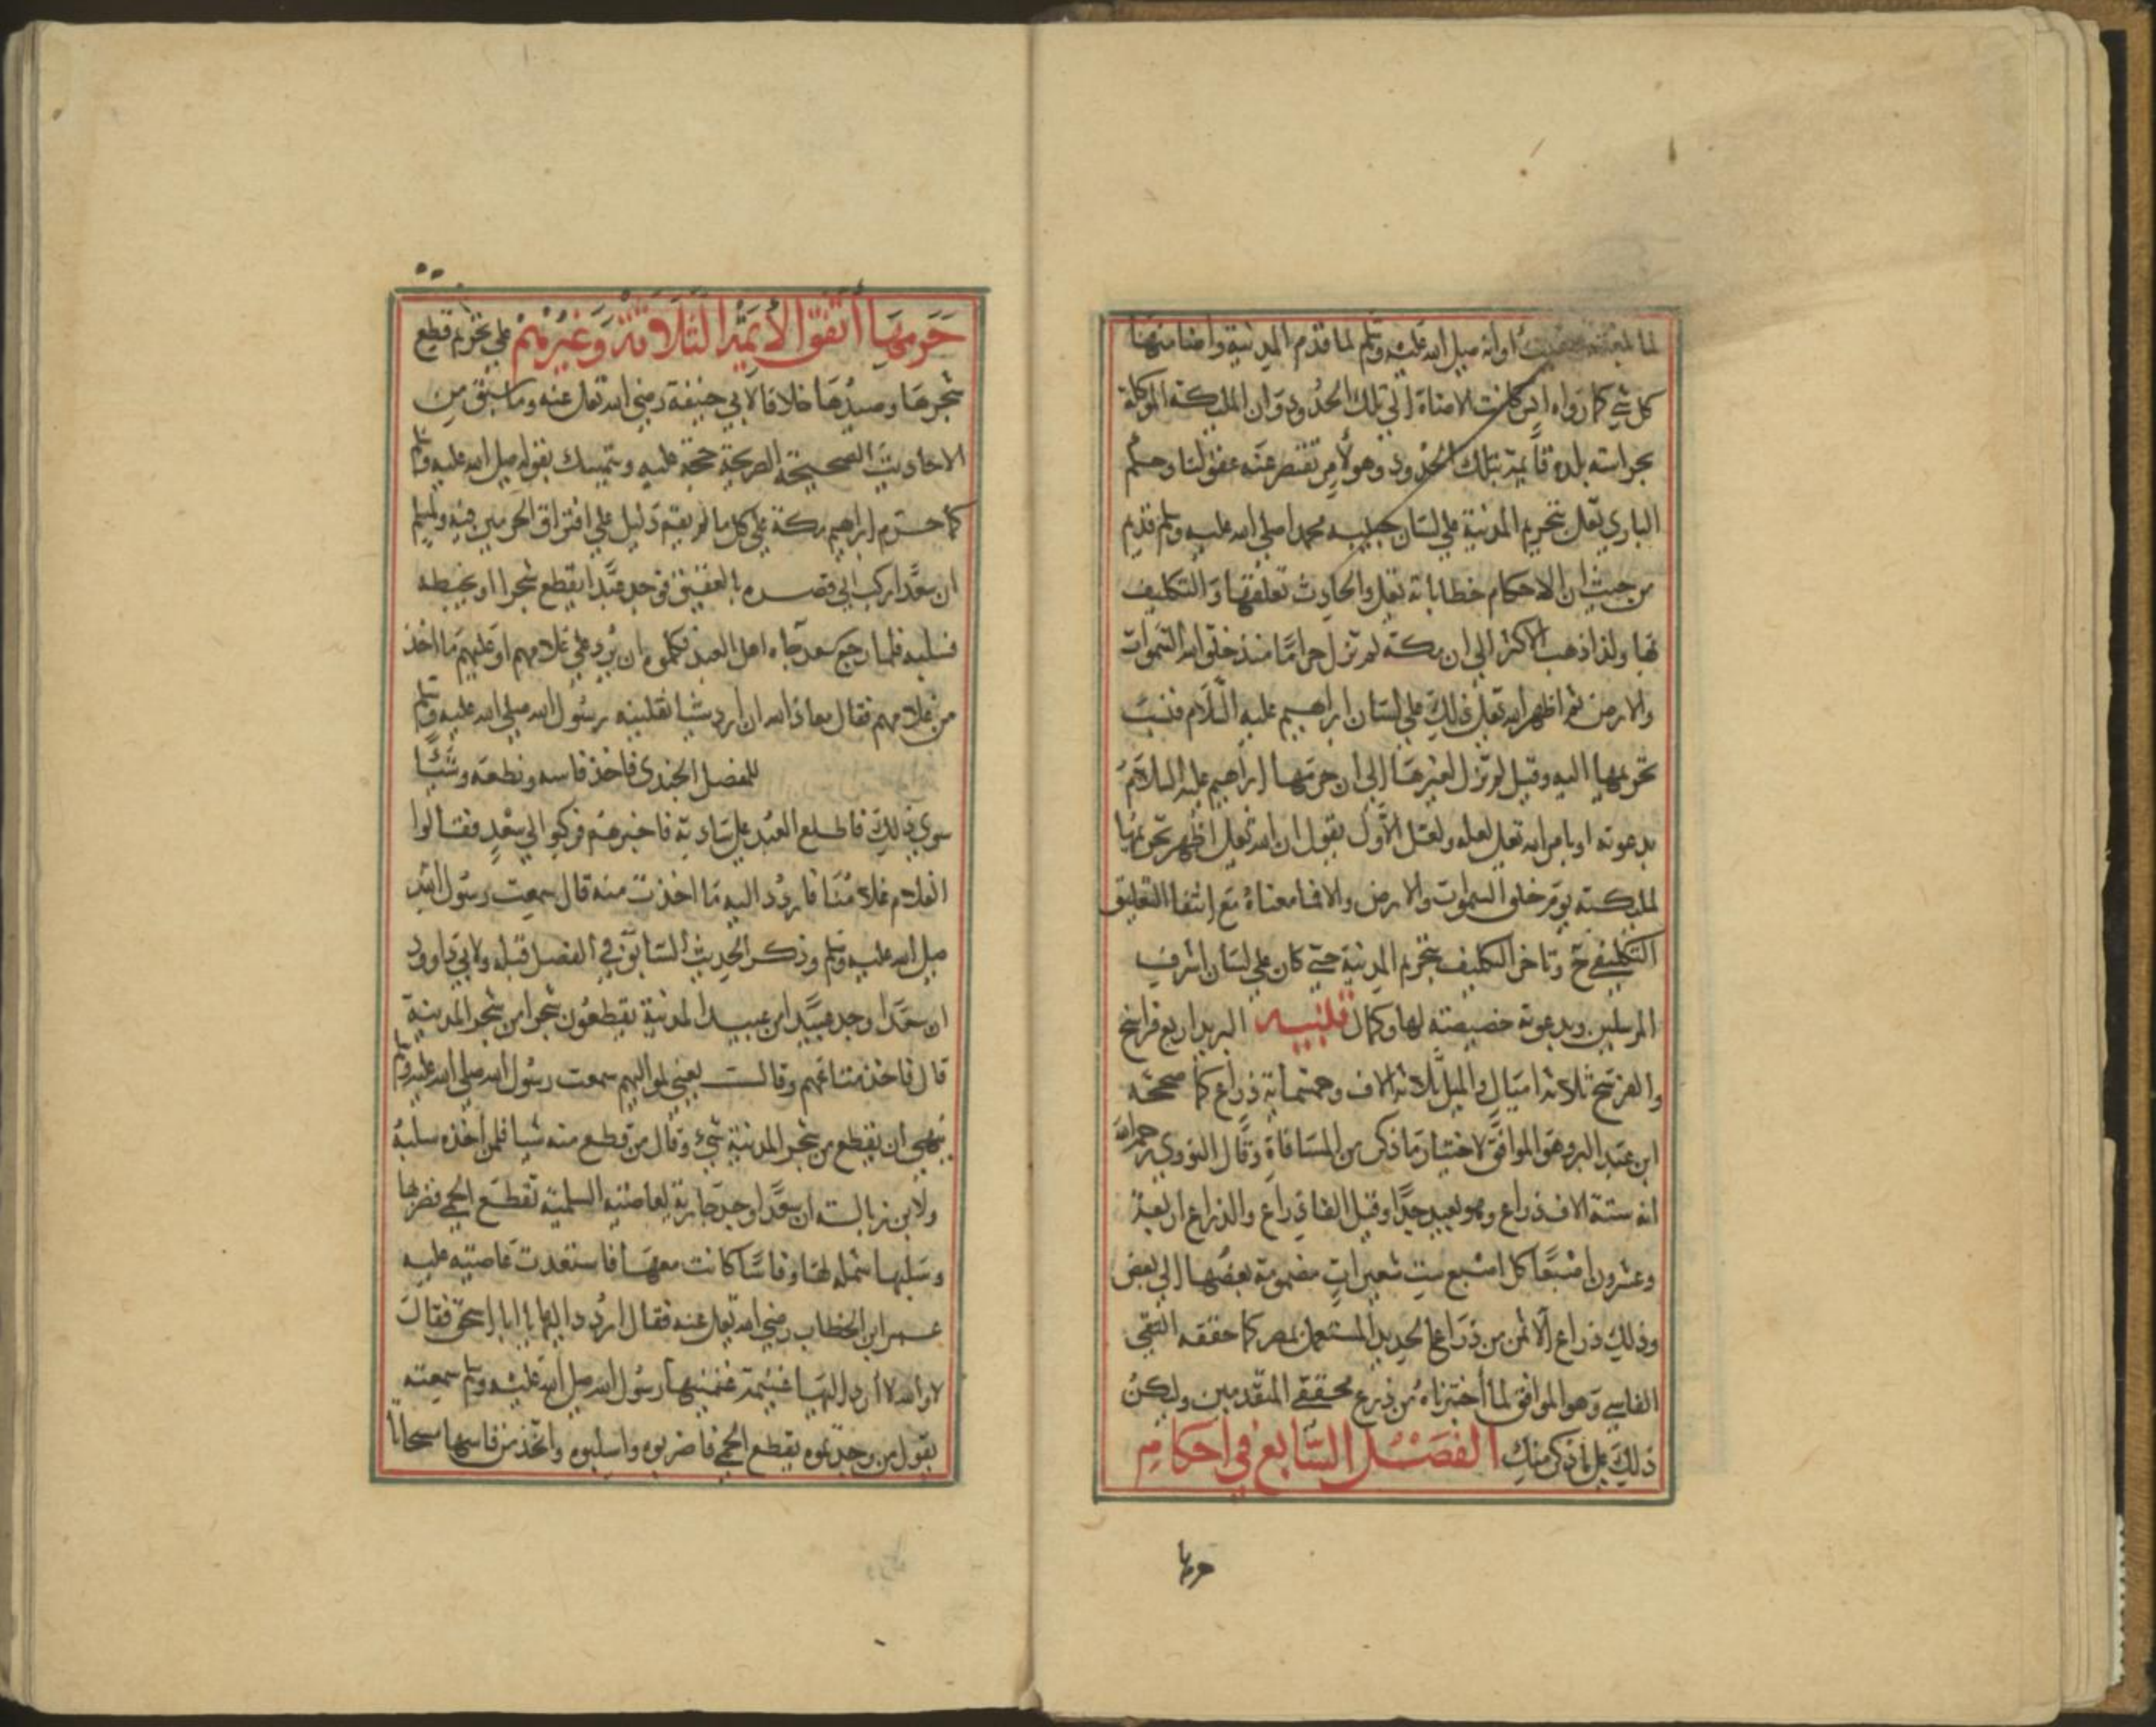 او انه صلى الله عليه وسلم لما قدم المدينة واضا منها
كل شي كما رواه انس كانت الاضاة الى تلك الحدود وان المليكة الموكلة
بحراسته بلده قايمة بتلك الحدود وهو لامر تقتصر عنه عقولنا وحكم
الباري تعالى بتحريم المدينة على لسان حبيبه محمدا صلى الله عليه وسلم قديم
من حيث ان الاحكام خطاباته تعالى والحادث تعلقها والتكليف
بها ولذا ذهب الاكثر الى ان مكة لم تزل حراما منذ خلق الله السموات
والارض ثم اظهر الله تعالى ذلك على لسان ابراهيم عليه السلام فنسب
تحريمها اليه وقيل لم تزل كغيرها الى ان حرمها ابراهيم عليه السلام
بدعوته او بامر الله تعالى له ولعل الاول يقول ان الله تعالى اظهر تحريمها
لمليكته يوم خلق السموات والارض والا فما معناه مع انتفا التعليق
التكليفي ح وتاخر التكليف بتحريم المدينة حتى كان على لسان اشرف
المرسلين وبدعوته خصيصة لها وكمال تنبيه البريد اربع فراسخ
والفرسخ ثلاثة اميال والميل ثلاثة الاف وخمسماية ذراع كما صححه
ابن عبد البر وهو الموافق لاختبار ما ذكر من المسافة وقال النووي رحمه الله
انه ستة الاف ذراع وهو بعيد جدا وقيل الفا ذراع والذراع اربعة
وعشرون اصبعا كل اصبع ست شعيرات مضمومة بعضها الى بعض
وذلك ذراع الا ثمن من ذراع الحديد المستعمل بمصر كما حققه التقي
الفاسي وهو الموافق لما اختبرناه من ذرع محققي المتقدمين وليكن
ذلك على ذكر منك الفصل السابع في احكام
حرمها
حرمها اتفق الائمة الثلاثة وغيرهم على تحريم قطع
شجرها وصيدها خلافا لابي حنيفة رضي الله تعالى عنه وما سبق من
الاحاديث الصحيحة الصريحة حجة عليه ويتمسك بقوله صلى الله عليه وسلم
كما حرم ابراهيم مكة على كل ما لم يقم دليل على افتراق الحرمين فيه ولمسلم
ان سعدا ركب الى قصره بالعقيق فوجد عبدا يقطع شجرا او يخبطه
فسلبه فلما رجع سعد جاه اهل العبد فكلموه ان يرد على غلامهم او عليهم ما اخذ
من غلامهم فقال معاذ الله ان ارد شيا نفلنيه رسول الله صلى الله عليه وسلم
للمفضل الجندي فاخذ فاسه ونطعه وشيئا
سوى ذلك فاطلع العبد على ساداته فاخبرهم فركبوا الى سعد فقالوا
الغلام غلامنا فاردد اليه ما اخذت منه قال سمعت رسول الله
صلى الله عليه وسلم وذكر الحديث السابق في الفصل قبله ولابي داوود
ان سعدا وجد عبيدا من عبيد المدينة يقطعون شجرا من شجر المدينة
قال فاخذ متاعهم وقال يعني لمواليهم سمعت رسول الله صلى الله عليه وسلم
ينهى ان يقطع من شجر المدينة شيء وقال من قطع منه شيا فلمن اخذه سلبه
ولابن زبالة ان سعدا وجد جارية لعاصية السلمية تقطع الحمى فضربها
وسلبها شملة لها وفاسا كانت معها فاستعدت عاصية عليه
عمر ابن الخطاب رضي الله تعالى عنه فقال اردد اليها يا ابا اسحق فقال
لا والله لا ارد اليها غنيمة غنمنيها رسول الله صلى الله عليه وسلم سمعته
يقول من وجدتموه يقطع الحمى فاضربوه واسلبوه واتخذ من فاسها مسحاتا